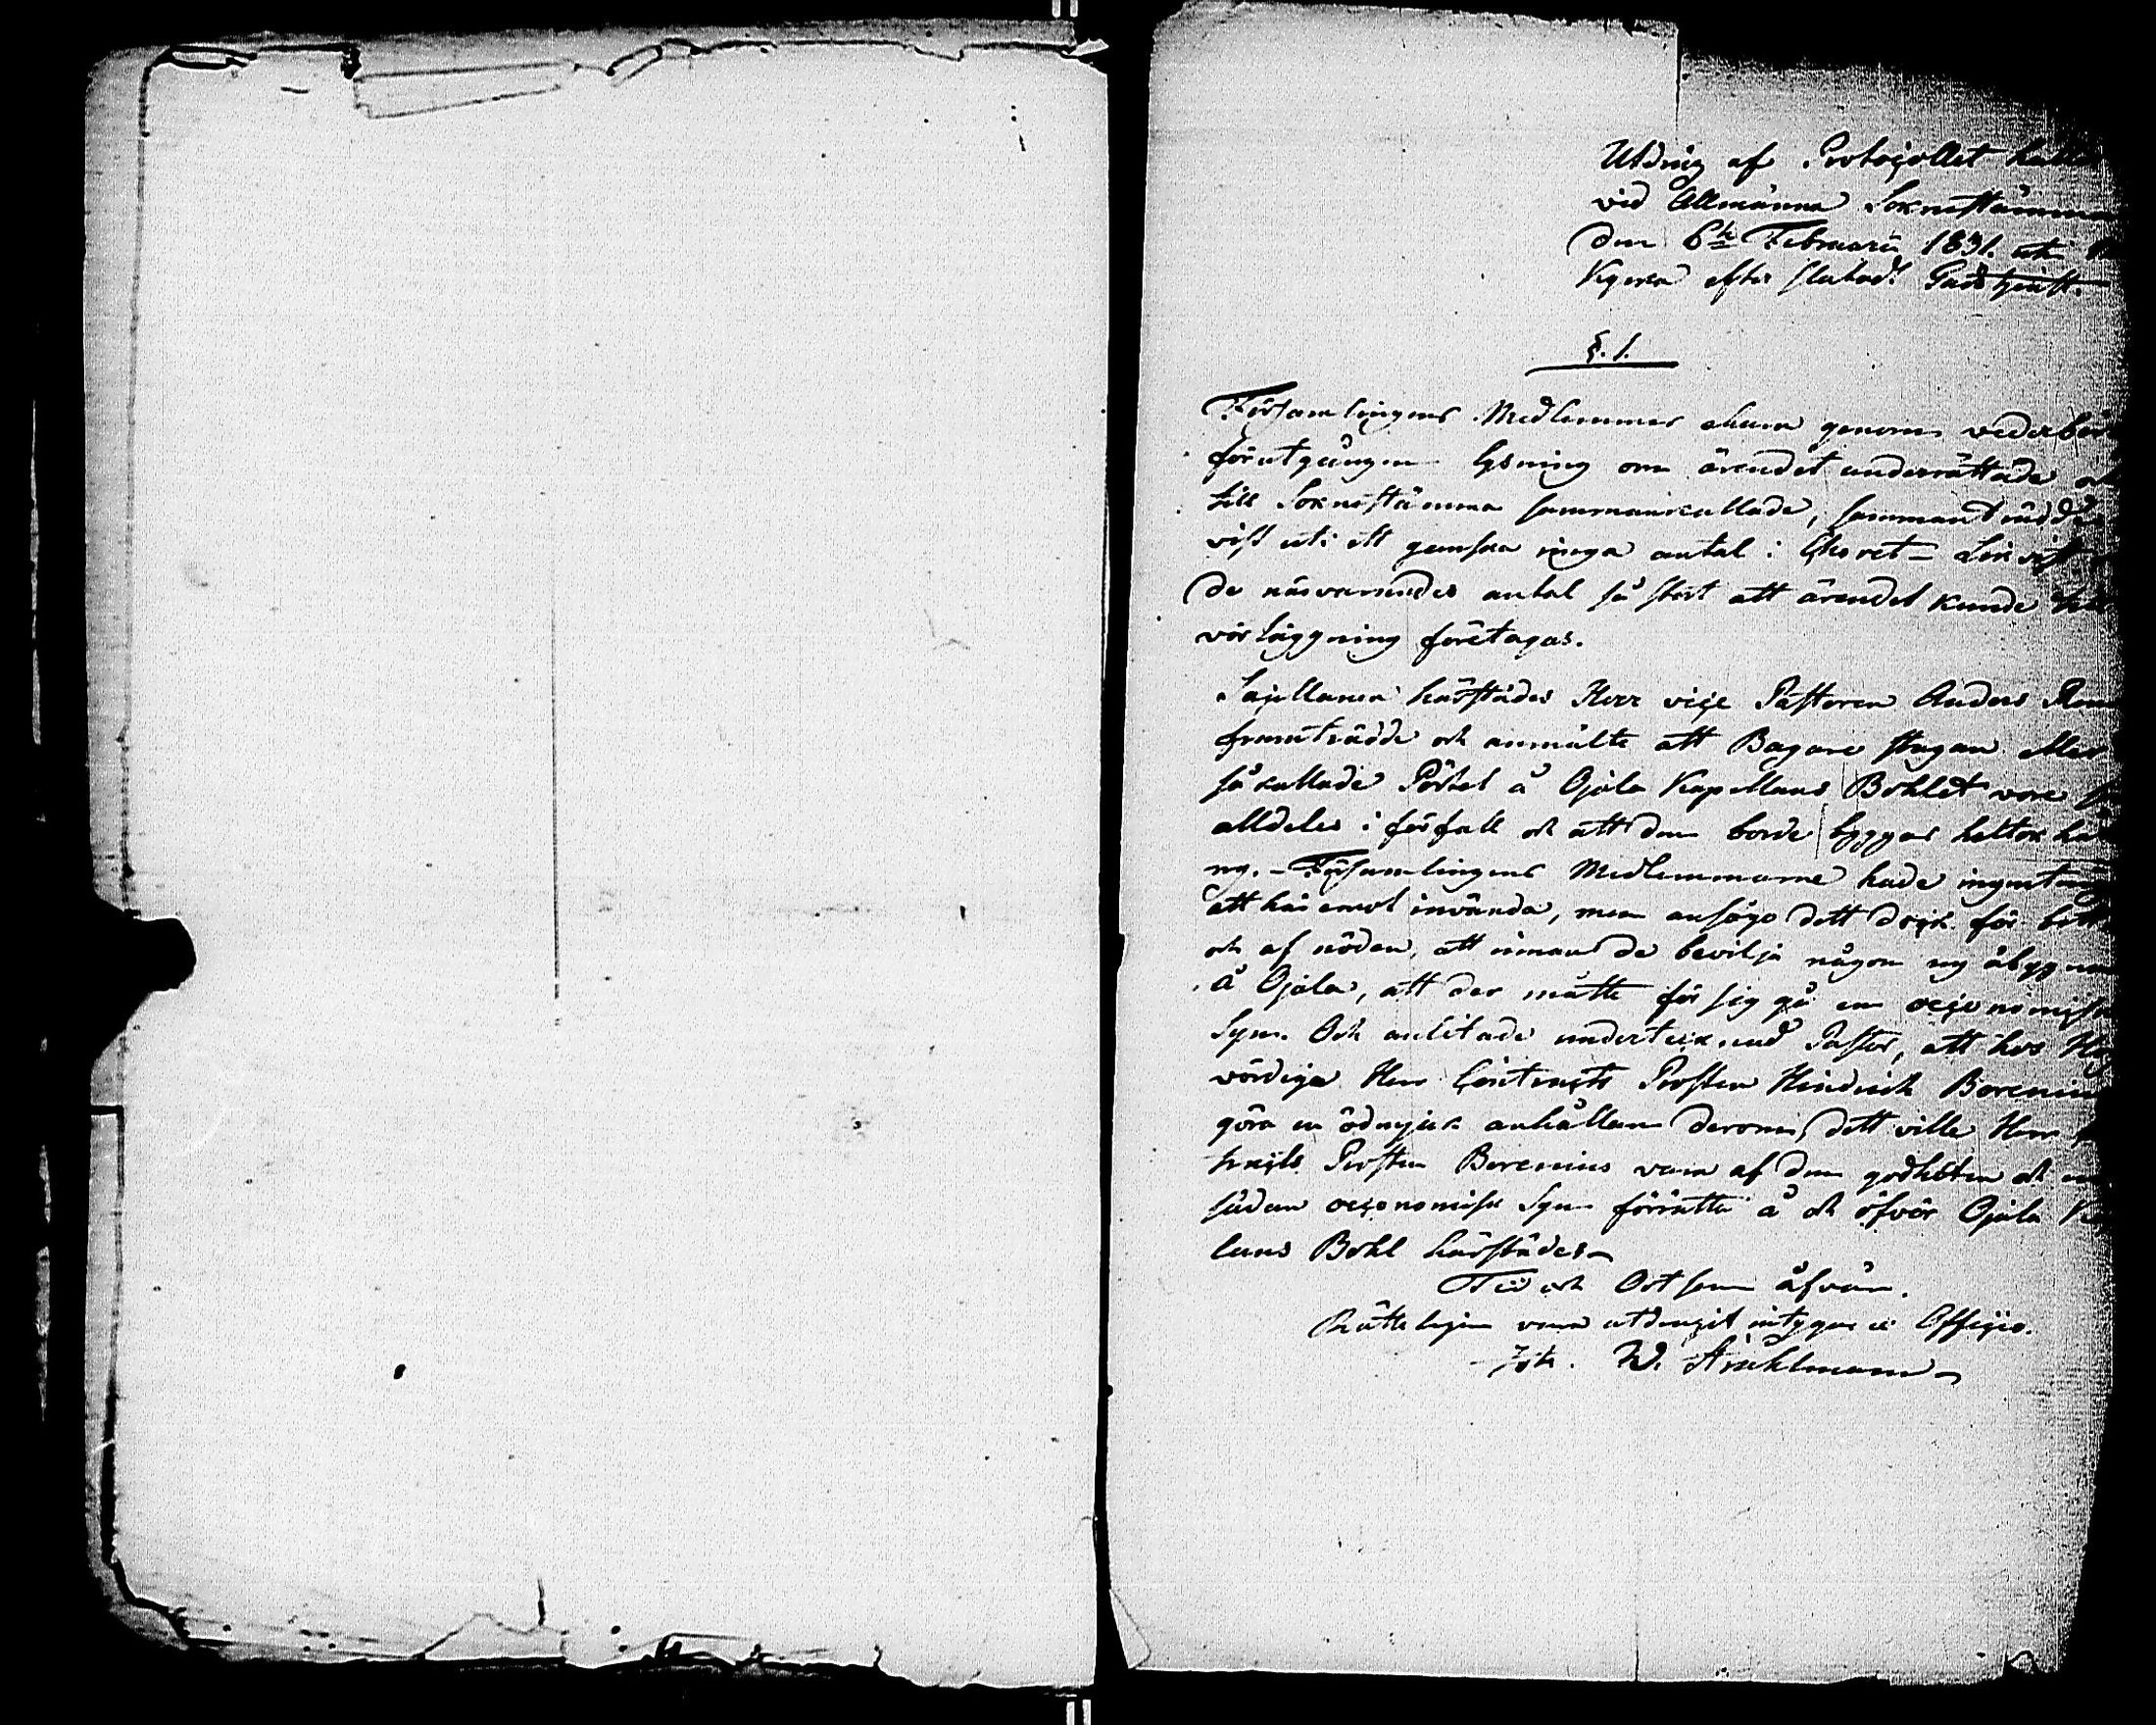 Utdrag af Protocollet
vid Allmänna Soknestämma
den 6te Februarii 1831. uti
Kyrka efter slutad Gudstjenst.
§. 1.
Församlingens Medlemmar genom
förutgången lysning om ärendet underrättade
till Soknestämma sammankallade, sammanträdde
visst uti ett ganska ringa antal i Choret =
de närvarandes antal så stort att ärendet kunde
vörläggning företagas.
Capellanen härstädes Herr vice Pastoren Anders
framträdde och anmälte att Bagare stugan eller
så kallade Pörtet å Ojala Kapellans Bohlet vore
alldeles i förfall och att den borde byggas heltoch
ny. - Församlingens Medlemmarne hade ingenting
att häremot invända, men ansågo dett dock för
och af nöden, att innan de bevilja någon ny
å Ojala, att der måtte för sig gå en oeconomisk
Syn. Och anlitade undertecknad Pastor, att hos
vördige Herr Contracts Prosten Hindrich Borenius
göra en ödmjuk anhållan derom, dett ville Herr
tracts Prosten Borenius vara af den godheten och en
sådan oeconomisk Syn förrätta å och öfvär Ojala
lans Bohl härstädes
Tid och Ort som åfvan.
Rätteligen vara utdragit intygar ex Officio.
Joh. W. Stråhlmann